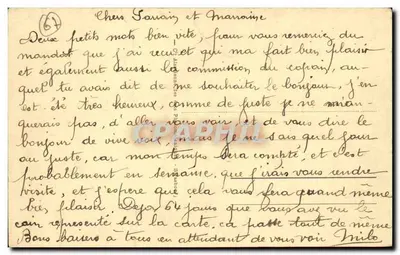 67
Chers Parrain et Marraine
Deux petits mots bien vite, pour vous remercier du
mandat que j'ai reçu et qui ma fait bien plaisir
et également aussi la commission du copain, au-
quel tu avais dit de me souhaiter le bonjour, j'en
est été très heureux, comme de juste je ne man-
querais pas, d'aller vous voir, et de vous dire le
bonjour de vive voix, mais je ne sais quel jour
au juste, car mon temps sera compté, et c'est
probablement en semaine, que j'irais vous rendre
visite, et j'espère que cela vous fera quand même
bien plaisir. Deja 64 jours que vous avez vu le
coin representé sur la carte, ça passe tout de même
Bons baisers à tous en attendant de vous voir Milo
CPRPHIL